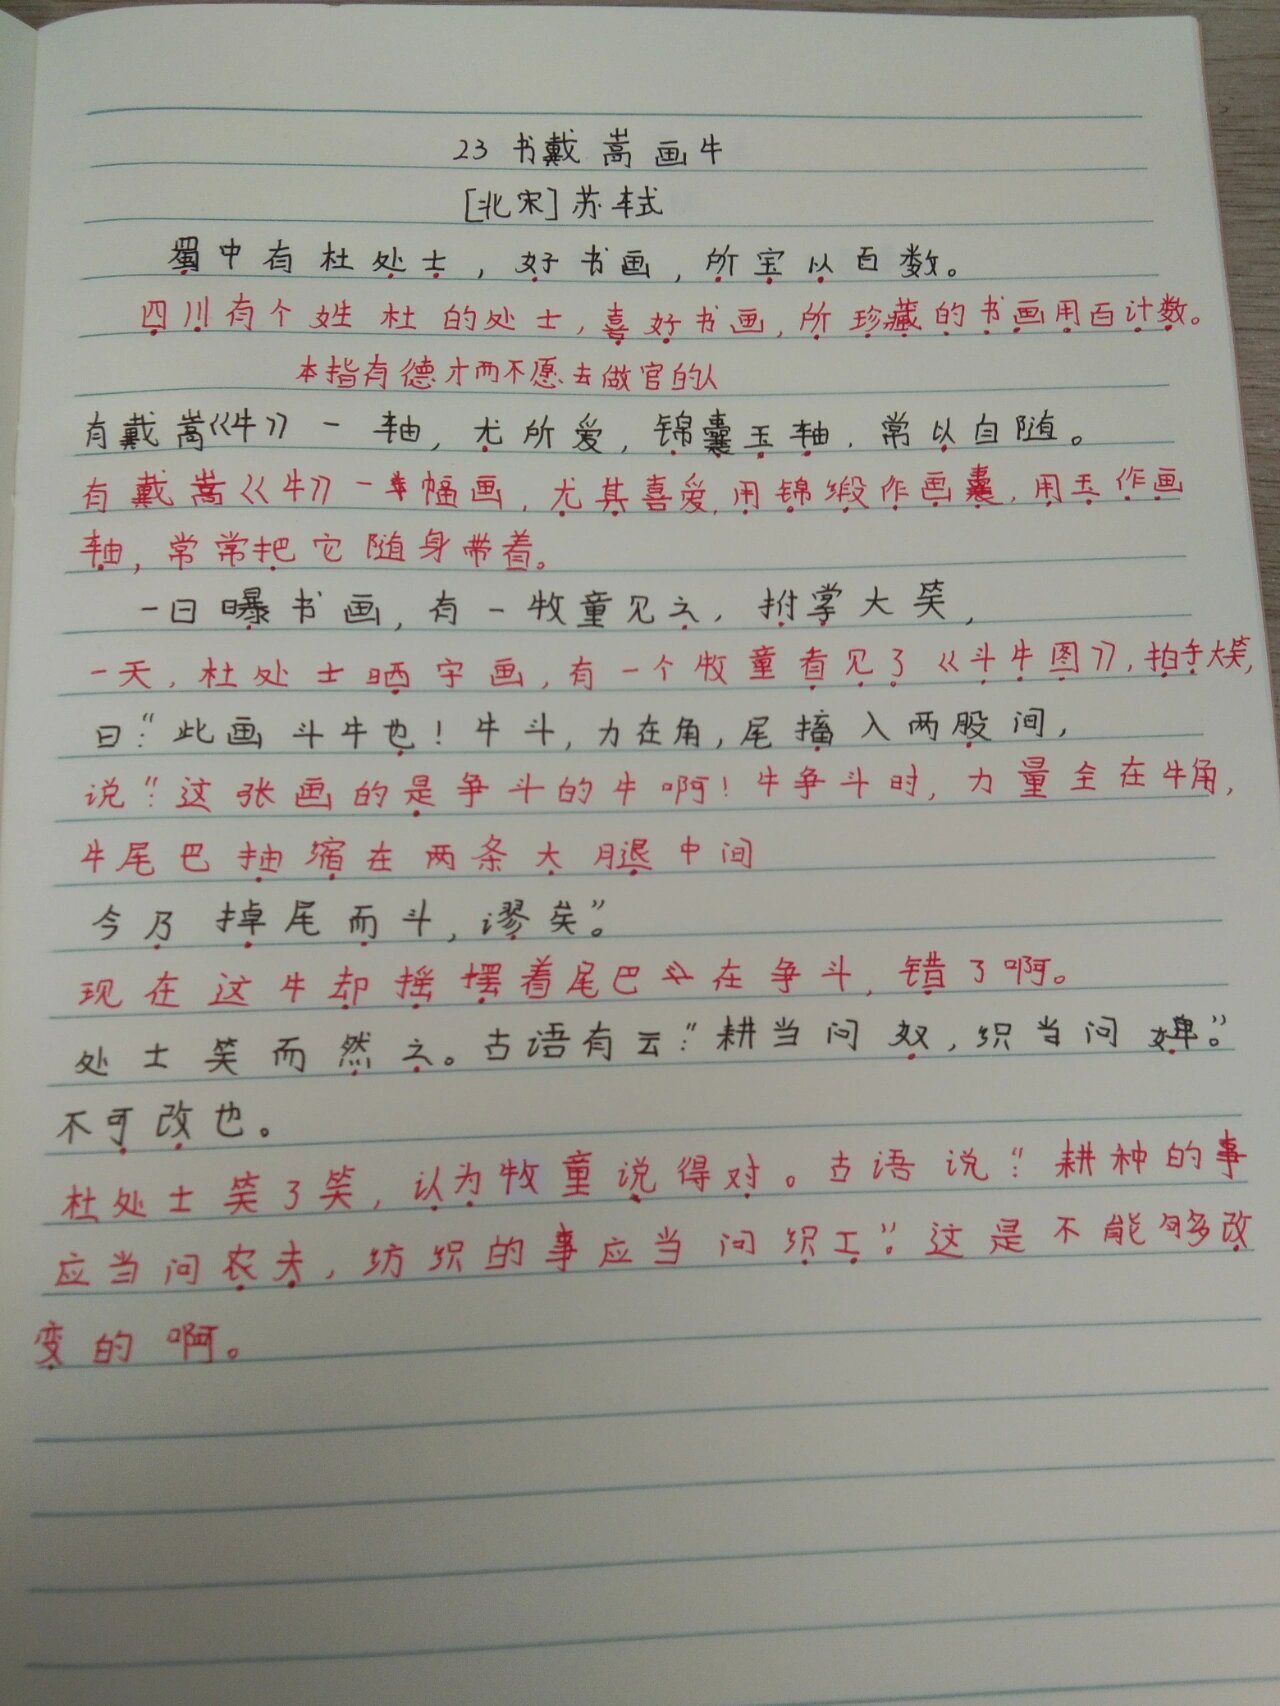 23 书戴嵩画牛
[北宋] 苏轼
蜀中有杜处士，好书画，所宝以百数。
四川有个姓杜的处士，喜好书画，所珍藏的书画用百计数。
本指有德才而不愿去做官的人
有戴嵩《牛》一轴，尤所爱，锦囊玉轴，常以自随。
有戴嵩《牛》一幅画，尤其喜爱，用锦缎作画囊，用玉作画
轴，常常把它随身带着。
一日曝书画，有一牧童见之，拊掌大笑，
一天，杜处士晒字画，有一个牧童看见了《斗牛图》，拍手大笑，
曰：“此画斗牛也！牛斗，力在角，尾搐入两股间，
说：“这张画的是争斗的牛啊！牛争斗时，力量全在牛角，
牛尾巴抽缩在两条大腿中间
今乃掉尾而斗，谬矣”。
现在这牛却摇摆着尾巴在争斗，错了啊。
处士笑而然之。古语有云：“耕当问奴，织当问婢”。
不可改也。
杜处士笑了笑，认为牧童说得对。古语说：“耕种的事
应当问农夫，纺织的事应当问织工”。这是不能够改
变的啊。